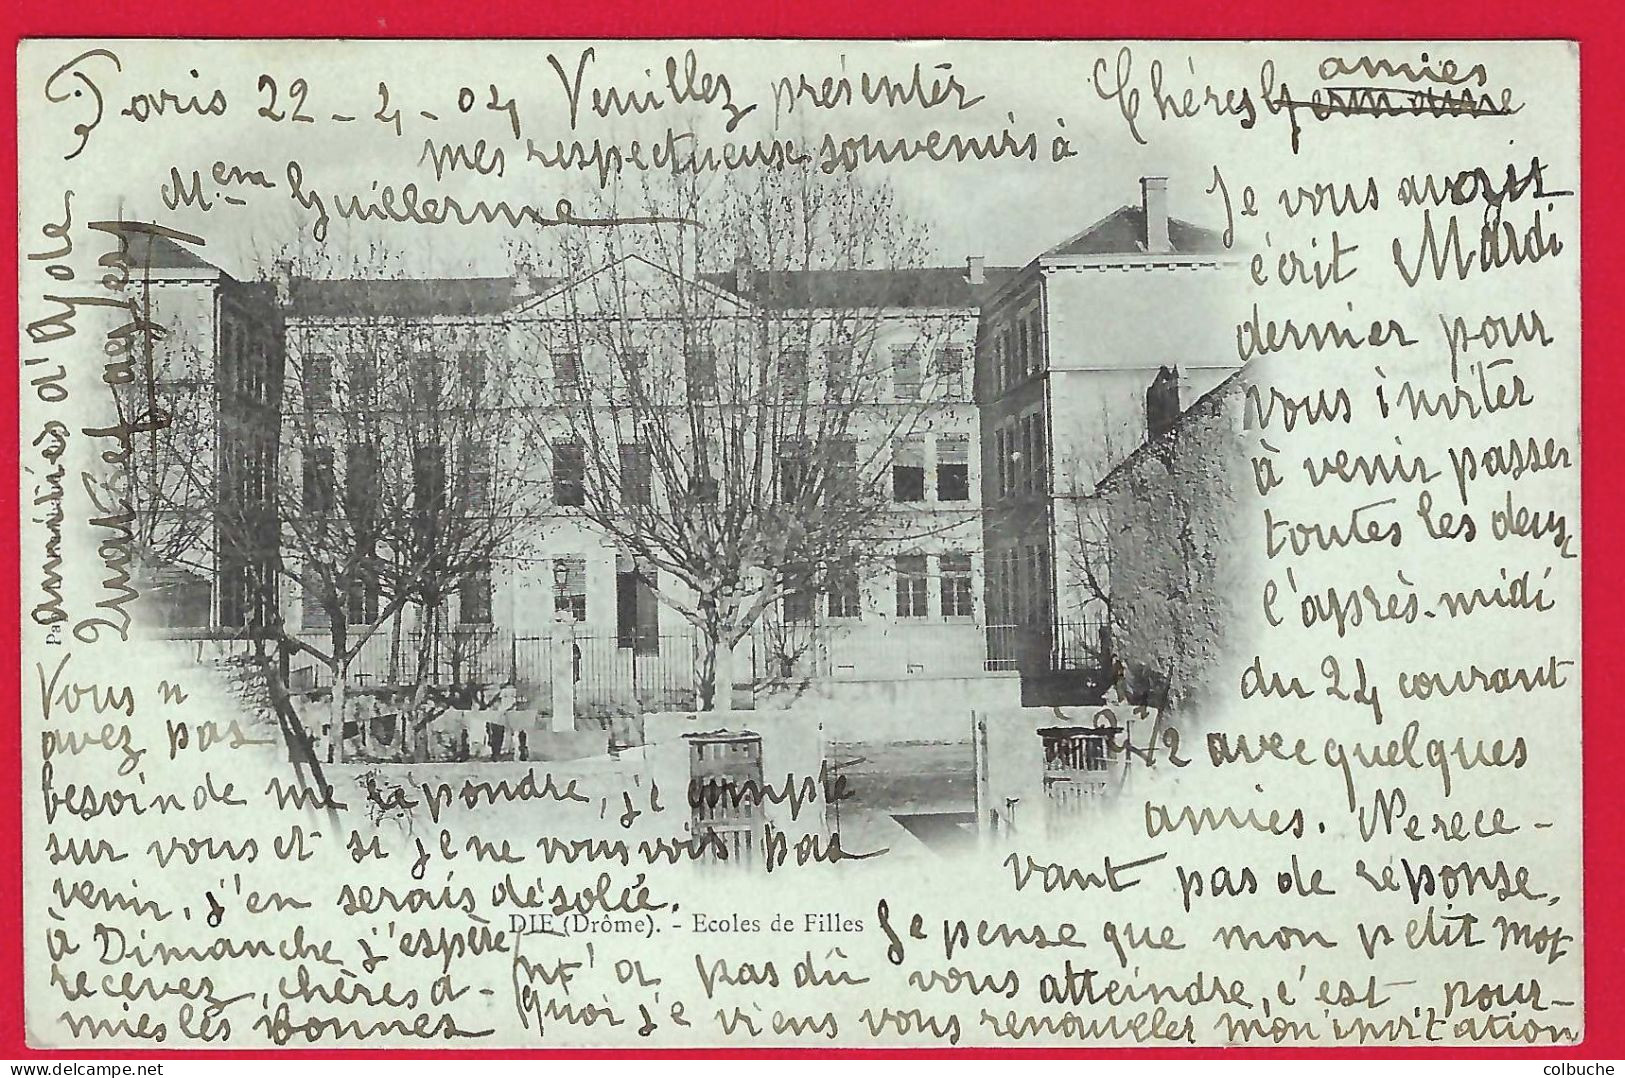 Paris 22-4-04 Veuillez présenter
mes respectueux souvenirs à
Mem Guillerme
amies
Chères Germaine
Je vous avais
écrit Mardi
dernier pour
vous inviter
à venir passer
toutes les deux
l'après-midi
du 24 courant
à 2h 1/2 avec quelques
amies. Ne rece-
vant pas de réponse,
Je pense que mon petit mot
n'a pas dû vous atteindre, c'est pour-
quoi je viens vous renouveler mon invitation
Vous n
avez pas
besoin de me répondre, je compte
sur vous et si je ne vous vois pas
venir, j'en serais désolée.
à Dimanche j'espère
recevez, chères a-
mies les bonnes
amitiés d'Yole
DIE (Drôme). - Ecoles de Filles
colbuche